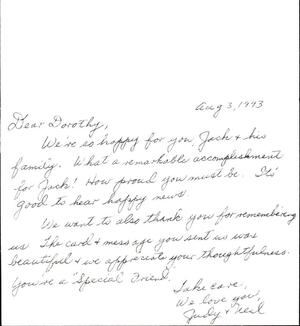 Aug 3, 1993
Dear Dorothy,
We're so happy for you, Jack & his
family. What a remarkable accomplishment
for Jack! How proud you must be. It's
good to hear happy news.
We want to also thank you for remembering
us. The card & message you sent us was
beautiful & we appreciate your thoughtfulness.
You're a "Special Friend."
Take care,
We love you,
Judy & Neil